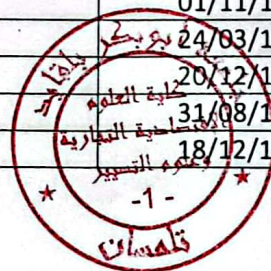 01/11/1
24/03/1
20/12/1
31/08/1
18/12/1
بوبكر بلقايد
كلية العلوم
الاقتصادية التجارية
وعلوم التسيير
-1-
تلمسان